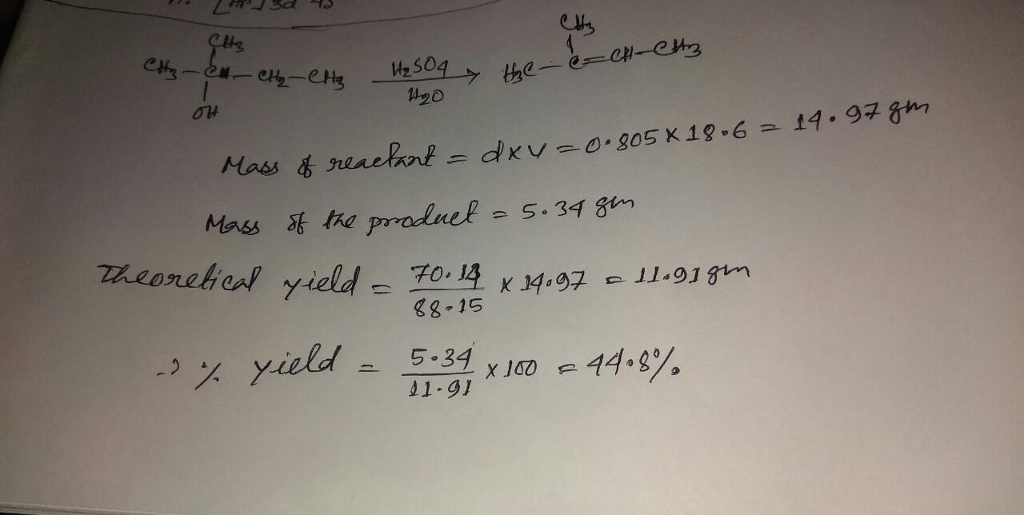 [Ar] 3d 4s
CH3 CH3
CH3-CH-CH2-CH3 H2SO4 H3C-C=CH-CH3
OH H2O
Mass of reactant = d×v = 0.805 × 18.6 = 14.97 gm
Mass of the product = 5.34 gm
Theoretical yield = 70.14/88.15 × 14.97 = 11.91 gm
→ % yield = 5.34/11.91 × 100 = 44.8%